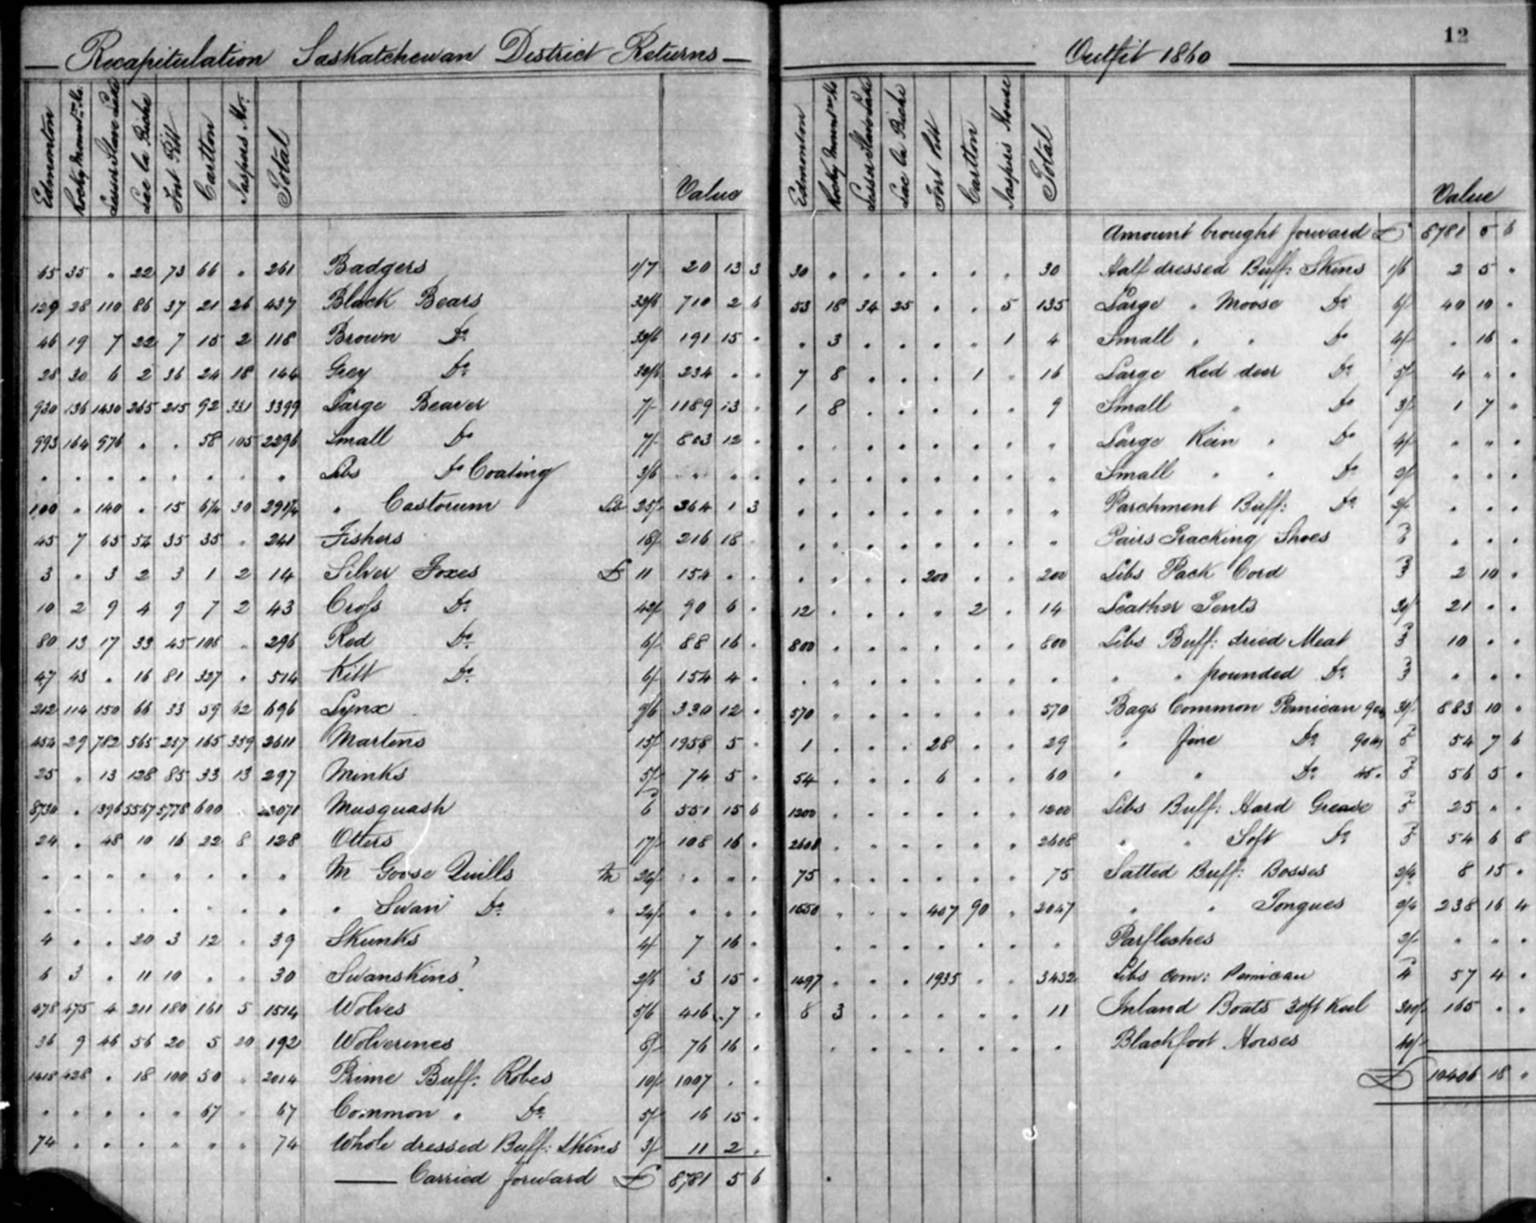 Recapitulation Saskatchewan District Returns
Edmonton Rocky Mountn Ho. Lesser Slave Lake Lac la Biche Fort Pitt Carlton Jaspers Ho. Total Value
65 35 " 22 73 66 " 261 Badgers 1/7 20 13 3
129 28 110 86 37 21 26 437 Black Bears 32/6 710 2 6
46 19 7 22 7 15 2 118 Brown Do. 32/6 191 15 "
28 30 6 2 36 24 18 144 Grey Do. 32/6 234 " "
930 136 1430 265 215 92 331 3399 Large Beaver 7/ 1189 13 "
993 164 976 " " 58 105 2296 Small Do. 7/ 803 12 "
" " " " " " " " Lbs Do. Coating 3/6 " " "
100 " 140 " 15 6¼ 30 291¼ " Castorum Lb 25/ 364 1 3
45 7 65 54 35 35 " 241 Fishers 18/ 216 18 "
3 " 3 2 3 1 2 14 Silver Foxes £ 11 154 " "
10 2 9 4 9 7 2 43 Cross Do. 42/ 90 6 "
80 13 17 33 45 108 " 296 Red Do. 6/ 88 16 "
47 43 " 16 81 327 " 514 Kitt Do. 6/ 154 4 "
212 114 150 66 33 59 62 696 Lynx 9/6 330 12 "
454 29 782 565 257 165 359 2611 Martens 15/ 1958 5 "
25 " 13 128 85 33 13 297 Minks 5/ 74 5 "
8730 " 1396 5567 5778 600 22071 Musquash 6 551 15 6
24 " 48 10 16 22 8 128 Otters 17/ 108 16 "
" " " " " " " " M Goose Quills M 26/ " " "
" " " " " " " " " Swan Do. " 24/ " " "
4 " " 20 3 12 " 39 Skunks 4/ 7 16 "
6 3 " 11 10 " " 30 Swanskins 2/6 3 15 "
478 475 4 211 180 161 5 1514 Wolves 5/6 416 7 "
36 9 46 56 20 5 20 192 Wolverines 8/ 76 16 "
1418 428 " 18 100 50 " 2014 Prime Buff: Robes 10/ 1007 " "
" " " " " 67 " 67 Common " Do. 5/ 16 15 "
74 " " " " " " 74 Whole dressed Buff: Skins 3/ 11 2 "
Carried forward £ 8781 5 6
12
Outfit 1860
Edmonton Rocky Mountn Ho Lesser Slave Lake Lac la Biche Fort Pitt Carlton Jaspers House Total Value
Amount brought forward £ 8781 5 6
30 " " " " " " 30 Half dressed Buff: Skins 1/6 2 5 "
53 18 34 25 " " 5 135 Large " Moose Do. 6/ 40 10 "
" 3 " " " " 1 4 Small " " Do. 4/ " 16 "
7 8 " " " 1 " 16 Large Red deer Do. 5/ 4 " "
1 8 " " " " " 9 Small " Do. 3/ 1 7 "
" " " " " " " " Large Rein " Do. 4/ " " "
" " " " " " " " Small " " Do. 2/ " " "
" " " " " " " " Parchment Buff: Do. 2/ " " "
" " " " " " " " Pairs Tracking Shoes 3 " " "
" " " " 200 " " 200 Lbs Pack Cord 3 2 10 "
12 " " " " 2 " 14 Leather Tents 30/ 21 " "
800 " " " " " " 800 Lbs Buff: dried Meat 3 10 " "
" " " " " " " " " " pounded Do. 3 " " "
570 " " " " " " 570 Bags Common Pemican 90lb 31/ 883 10 "
1 " " " 28 " " 29 " Fine Do. 90lb 54 7 6
54 " " " 6 " " 60 " " Do. 45 " 56 5 "
1200 " " " " " " 1200 Lbs Buff: Hard Grease 25 " "
2608 " " " " " " 2608 " " Soft Do. 54 6 8
75 " " " " " " 75 Salted Buff: Bosses 2/4 8 15 "
1550 " " " 407 90 " 2047 " " Tongues 2/4 238 16 4
" " " " " " " " Parfleshes 2/ " " "
1497 " " " 1935 " " 3432 Lbs Com: Pemican 4 57 4 "
8 3 " " " " " 11 Inland Boats 30ft Keel 300/ 165 " "
" " " " " " " " Blackfoot Horses 40/
£ 10406 18 "